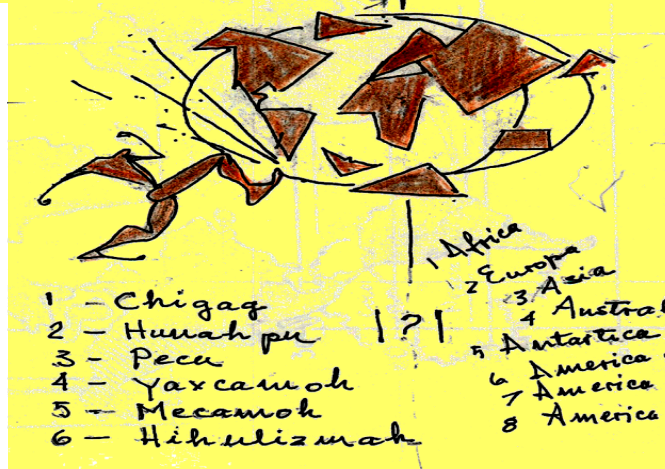 1 - Chigag
2 - Hunahpu
3 - Pecu
4 - Yaxcamoh
5 - Mecamoh
6 - Hihulizmak
|?|
1 Africa
2 Europa
3 Asia
4 Austral
5 Antartica
6 America
7 America
8 America